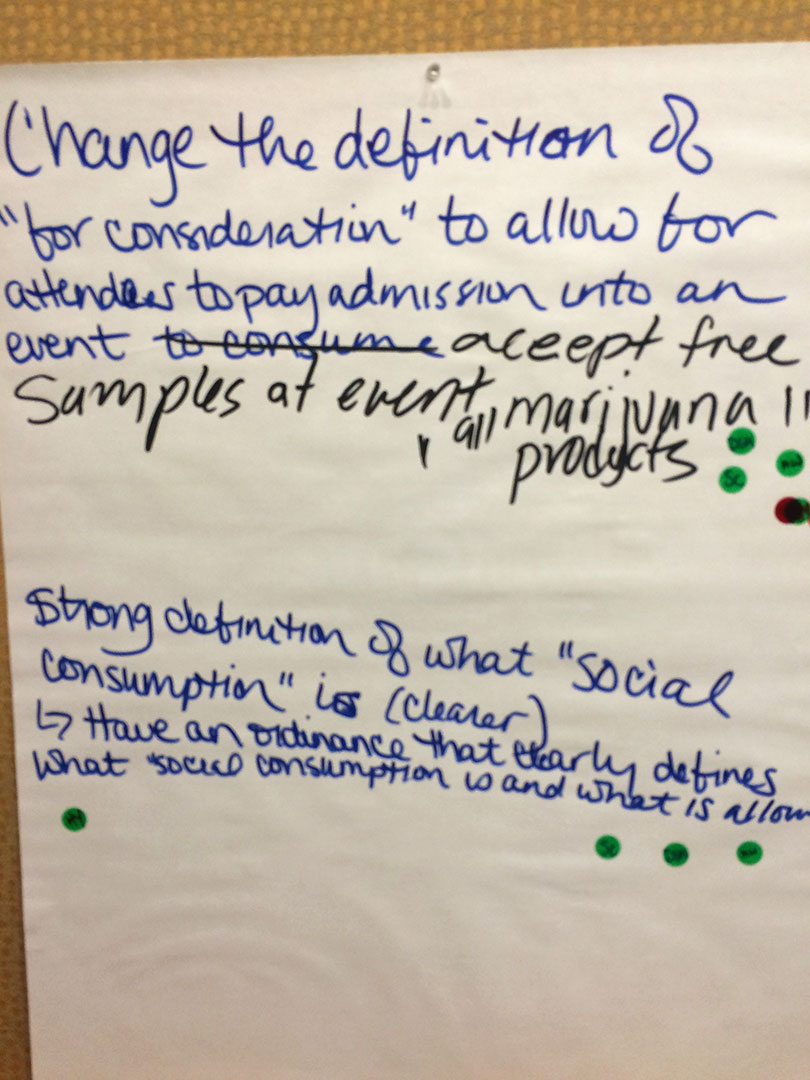 Change the definition of
"for consideration" to allow for
attendees to pay admission into an
event to consume aceept free
Samples at event, all marijuana
products
DSA
SC
Strong definition of what "social
consumption" is (clearer)
↳ Have an ordinance that clearly defines
what "social consumption is and what is allow
SC